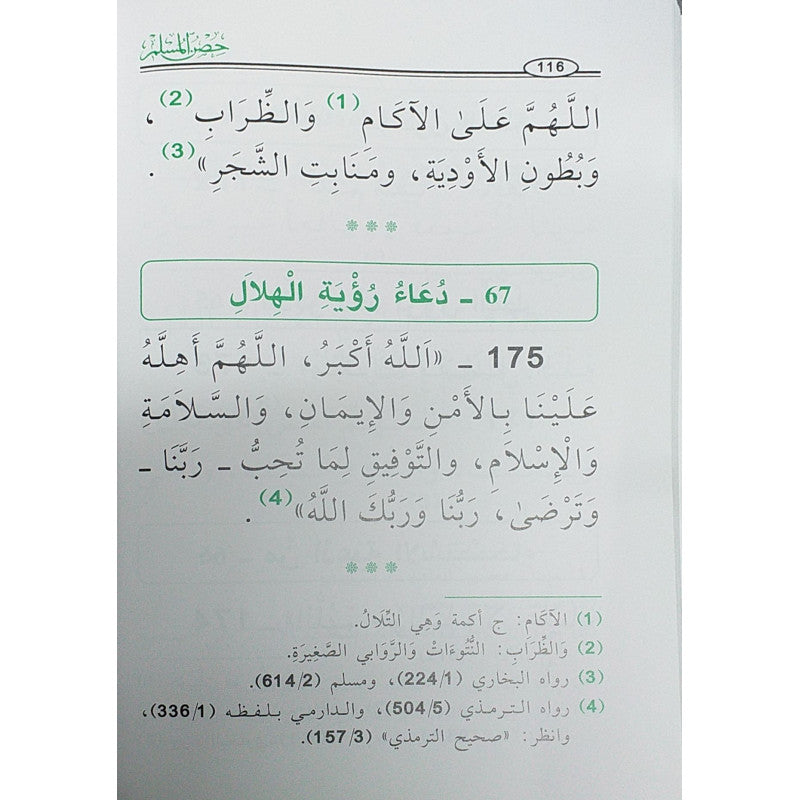 حِصْنُ المُسْلِمِ
116
اللَّهُمَّ عَلَىٰ الآكَامِ (1) وَالظِّرَابِ (2)،
وَبُطُونِ الأَوْدِيَةِ، ومَنَابِتِ الشَّجَرِ» (3).
67 ـ دُعَاءُ رُؤْيَةِ الْهِلالِ
175 ـ «اَللَّهُ أَكْبَرُ، اللَّهُمَّ أَهِلَّهُ
عَلَيْنَا بِالأَمْنِ وَالإِيمَانِ، وَالسَّلامَةِ
وَالْإِسْلامِ، والتَّوْفِيقِ لِمَا تُحِبُّ ـ رَبَّنَا ـ
وَتَرْضَىٰ، رَبُّنَا وَرَبُّكَ اللَّهُ» (4).
(1) الآكَامِ: ج أكمة وَهِي التِّلَالُ.
(2) وَالظِّرَابِ: النُّتُوءَاتْ والرَّوَابي الصَّغِيرَةِ.
(3) رواه البخاري (224/1)، ومسلم (614/2).
(4) رواه الترمذي (504/5)، والدارمي بلفظه (336/1)،
وانظر: «صحيح الترمذي» (157/3).